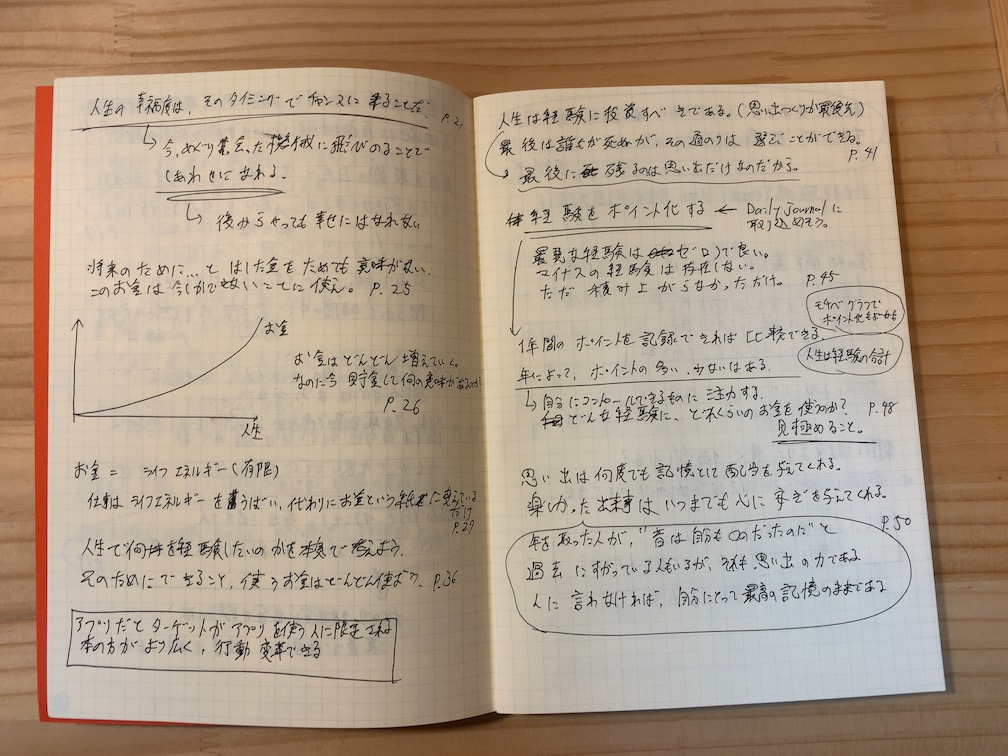 人生の幸福度は、そのタイミングでチャンスに乗ることだ。 P.21
今、めぐり会った機械に飛びのることで
しあわせになれる。
後からやっても幸せにはなれない
将来のために…と はした金をためても意味がない。
このお金は今しかできないことに使え。 P.25
お金
お金はどんどん増えていく。
なのに今 貯金して何の意味があるのか
P.26
人生
お金 = ライフエネルギー(有限)
仕事はライフエネルギーを奪うばい、代わりにお金という 変えている
だけ
P.27
人生で何を経験したいのかを本気で考えよう。
そのためにできること、使うお金はどんどん使おう。 P.36
アプリだとターゲットがアプリを使う人に限定される
本の方がより広く、行動変革できる
人生は経験に投資すべきである。(思い出づくりが最優先)
最後は誰もが死ぬが、その道のりは選ぶことができる。
P.41
最後に残るのは思い出だけなのだから。
経験をポイント化する ← Daily Journalに
取り込めそう。
最悪な経験はゼロで良い。
マイナスの経験は存在しない。
ただ積み上がらなかっただけ。 P.45
モチベグラフで
ポイント化
1年間のポイントを記録できれば比較できる
人生は経験の合計
年によって、ポイントの多い、少ないはある。
自分にコントロールできるものに注力する。
どんな経験に、どれくらいのお金を使うのか? P.48
見極めること。
思い出は何度でも記憶として配当を与えてくれる。
楽しかった出来事はいつまでも心に 与えてくれる。
P.50
年をとった人が、"昔は自分も〇〇だったのに"と
過去にすがっている人もいるが、それも思い出の力である
人に言わなければ、自分にとって最高の記憶のままである